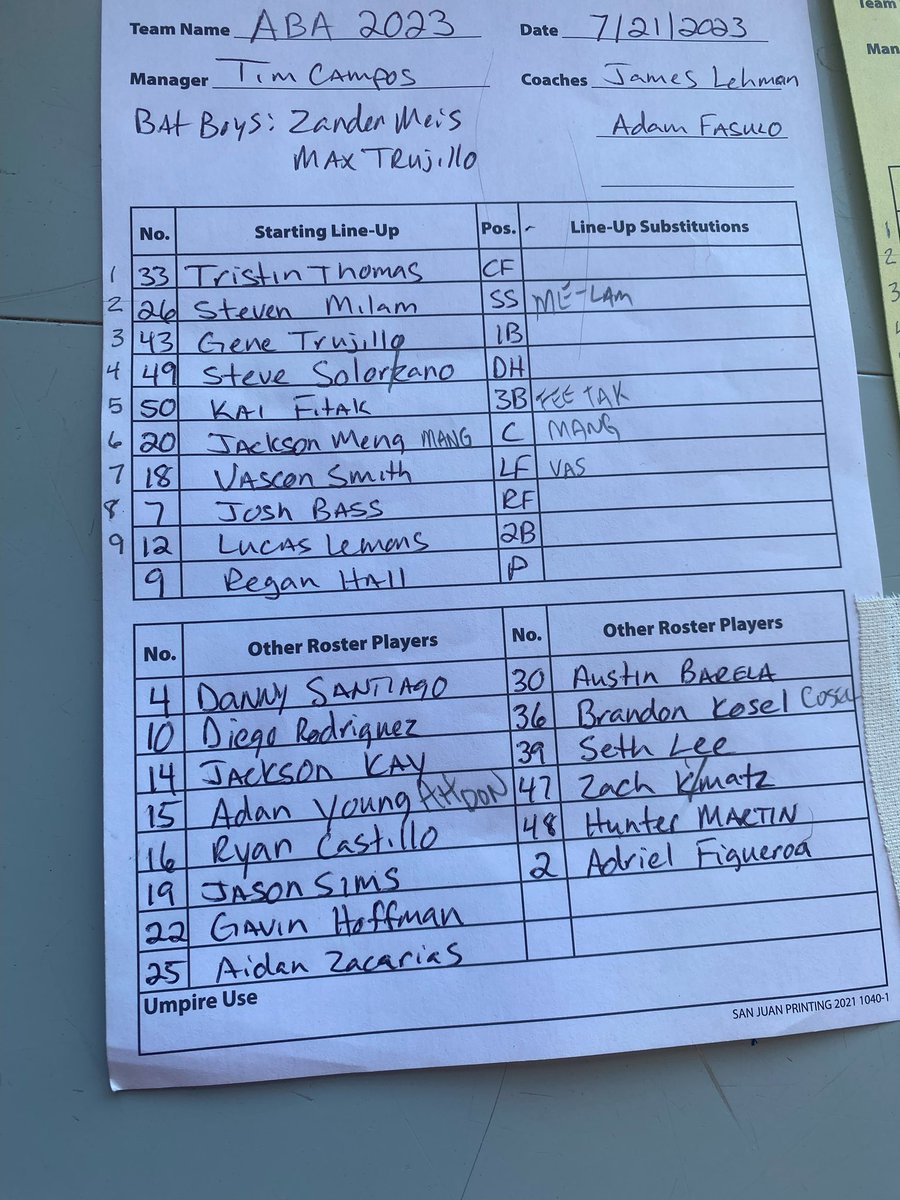 Team Name ABA 2023 Date 7/21/2023
Manager Tim Campos Coaches James Lehman
Bat Boys: Zander Meis Adam Fasulo
Max Trujillo
No. Starting Line-Up Pos. Line-Up Substitutions
1 33 Tristin Thomas CF
2 26 Steven Milam SS ME-LAM
3 43 Gene Trujillo 1B
4 49 Steve Solorzano DH
5 50 Kai Fitak 3B FEE TAK
6 20 Jackson Meng MANG C MANG
7 18 Vascon Smith LF VAS
8 7 Josh Bass RF
9 12 Lucas Lemons 2B
9 Regan Hall P
No. Other Roster Players No. Other Roster Players
4 Danny Santiago 30 Austin Barela
10 Diego Rodriguez 36 Brandon Kosel
14 Jackson Kay 39 Seth Lee
15 Adan Young 47 Zach
16 Ryan Castillo 48 Hunter Martin
19 Jason Sims 2 Adriel Figueroa
22 Gavin Hoffman
25 Aidan Zacarias
Umpire Use
SAN JUAN PRINTING 2021 1040-1
Team
Man
1
2
3